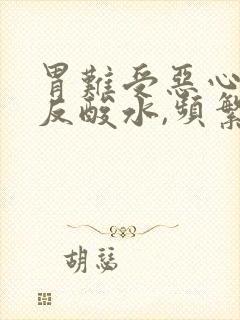 胃難受惡心
反酸水,頻繁
胡瑟